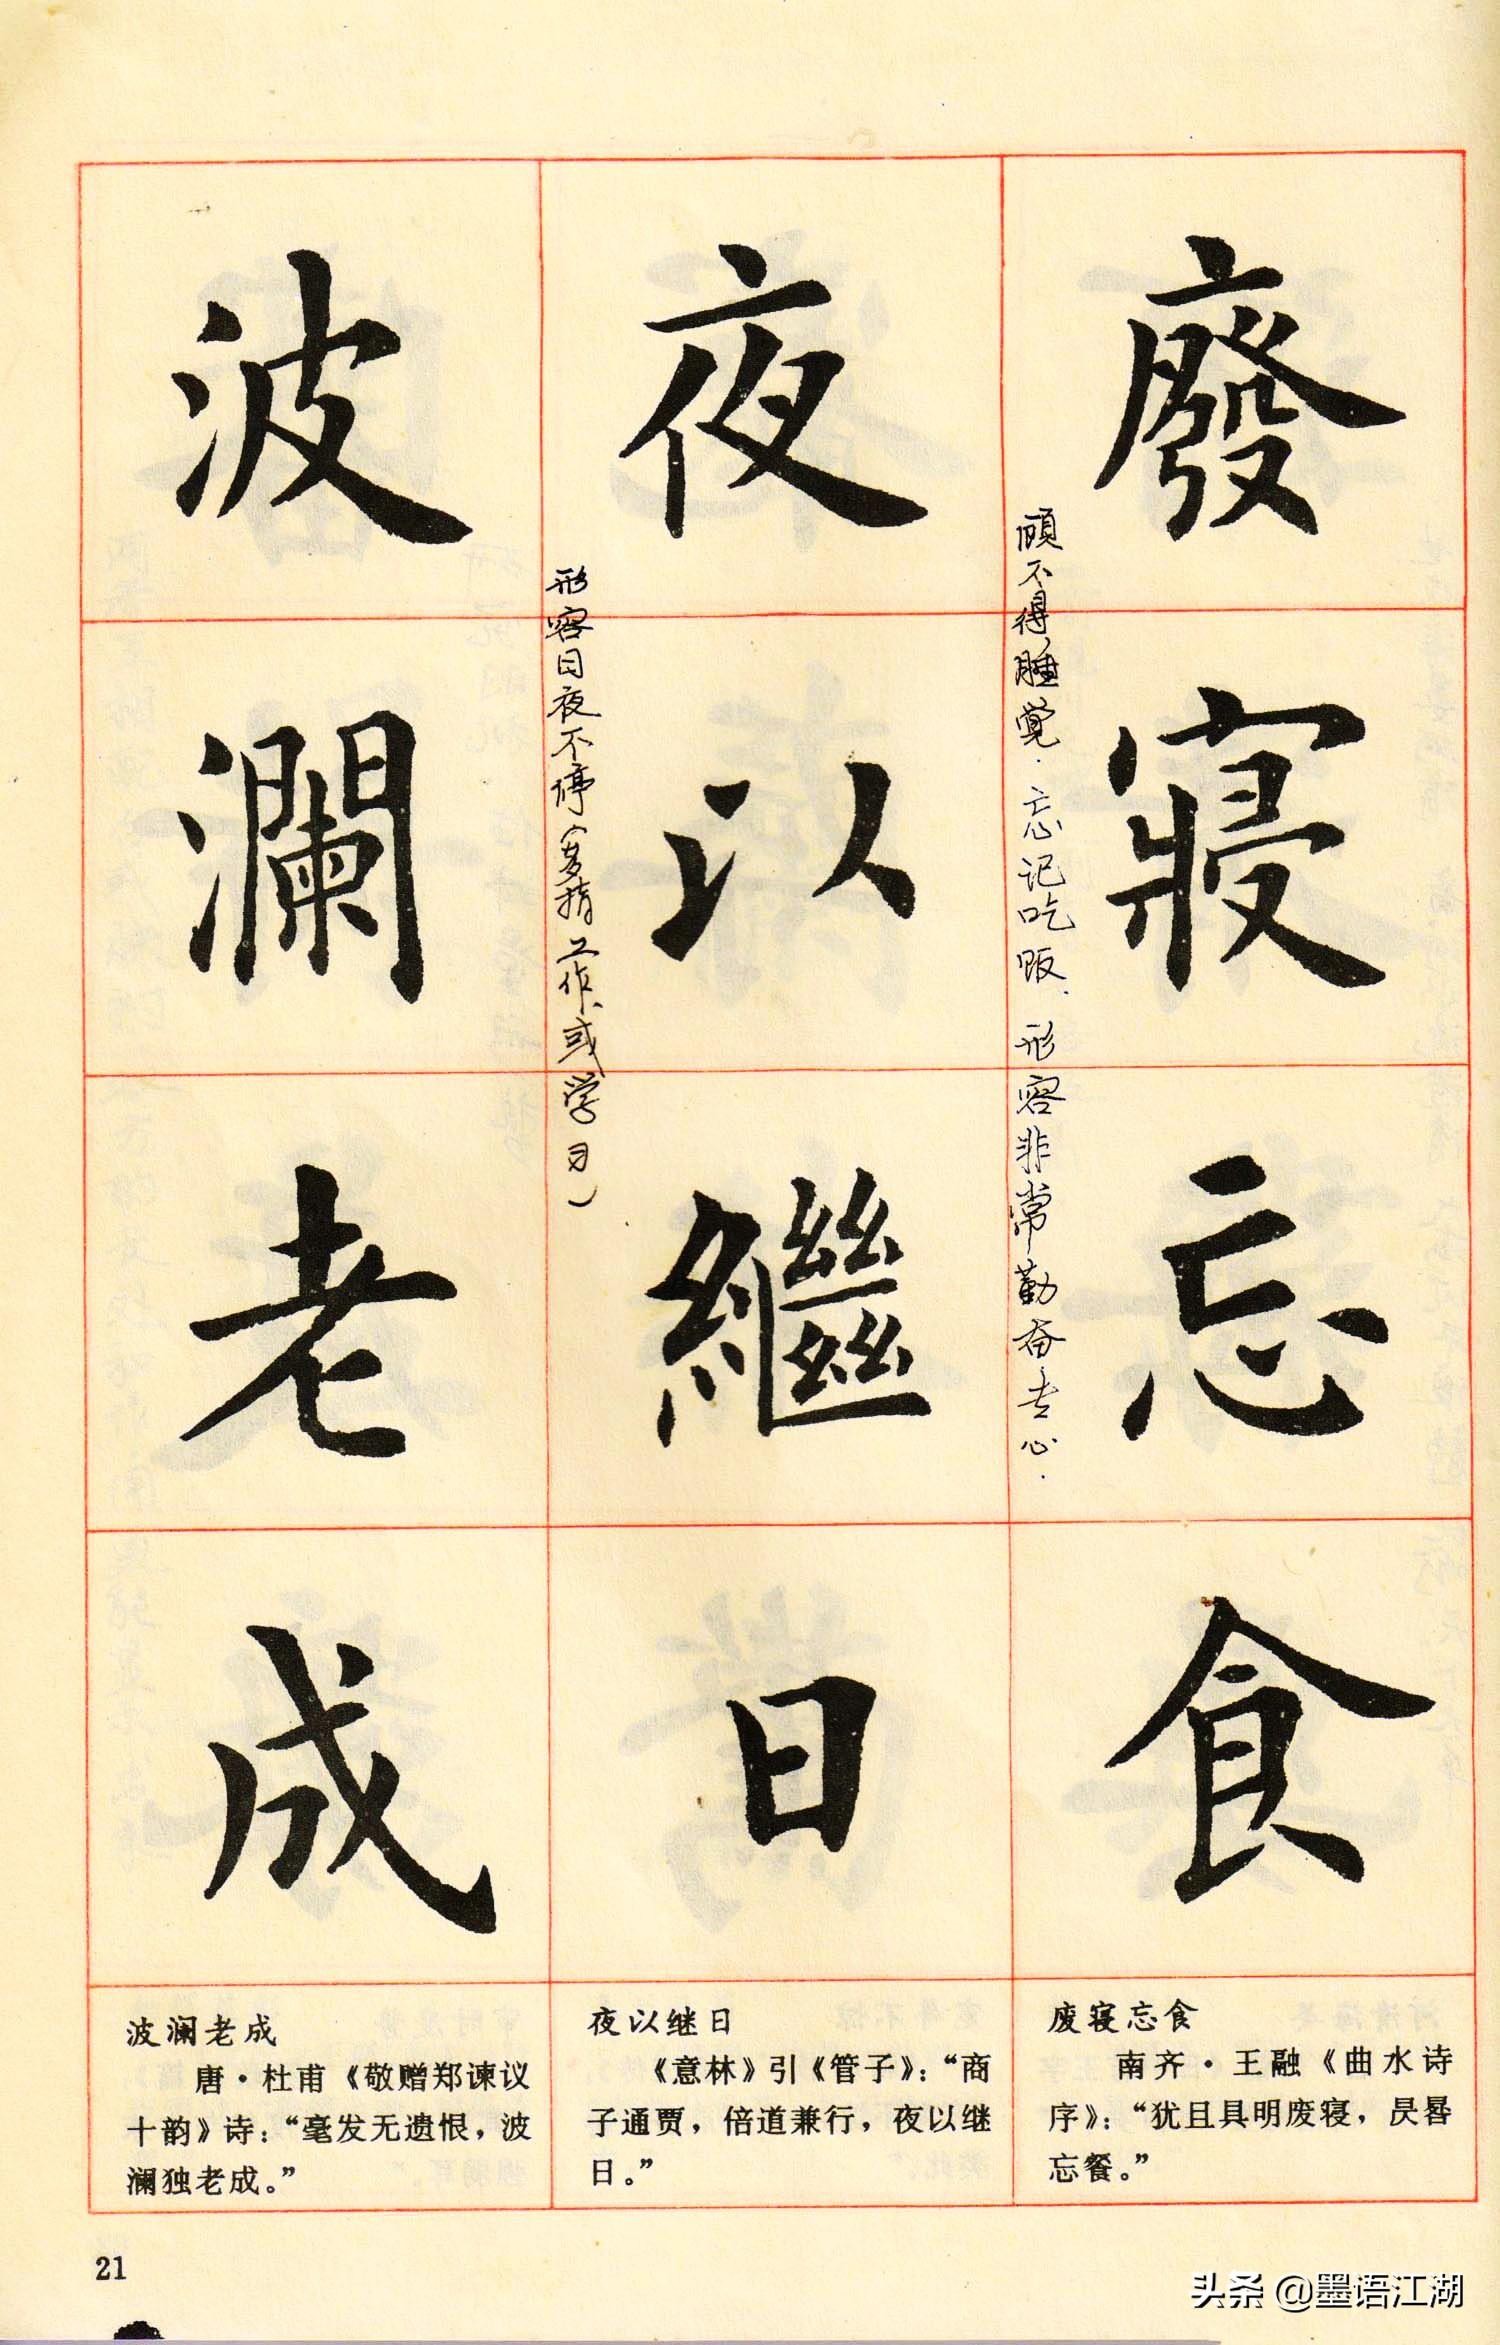 廢寢忘食
顾不得睡觉.忘记吃饭.形容非常勤奋专心.
夜以繼日
形容日夜不停(多指工作或学习)
波瀾老成
废寝忘食
南齐·王融《曲水诗
序》：“犹且具明废寝，昃晷
忘餐。”
夜以继日
《意林》引《管子》：“商
子通贾，倍道兼行，夜以继
日。”
波澜老成
唐·杜甫《敬赠郑谏议
十韵》诗：“毫发无遗恨，波
澜独老成。”
21
头条 @墨语江湖